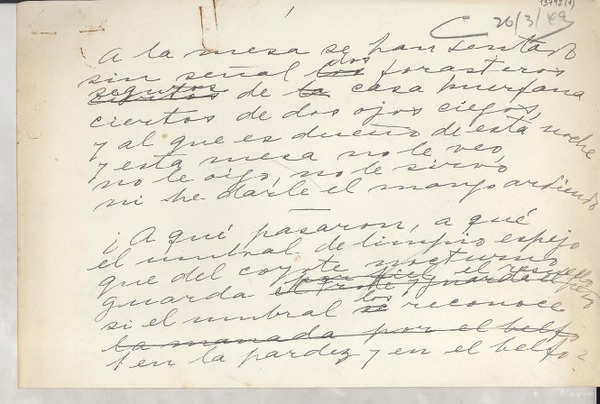 13798(1)
C 26/3/49
A la mesa se han sentado
sin señal los dos forasteros
ciertos seguros de la casa huérfana
ciertos de dos ojos ciegos,
y al que es dueño de esta noche
y esta mesa no le veo,
no le oigo, no le sirvo,
ni he darle el mango ardiendo
¡A qué pasaron, a qué
el umbral de limpio espejo
que del coyote nocturno
guarda
si el umbral se los reconoce
la manada por el belfo
en la pardez y en el belfo?